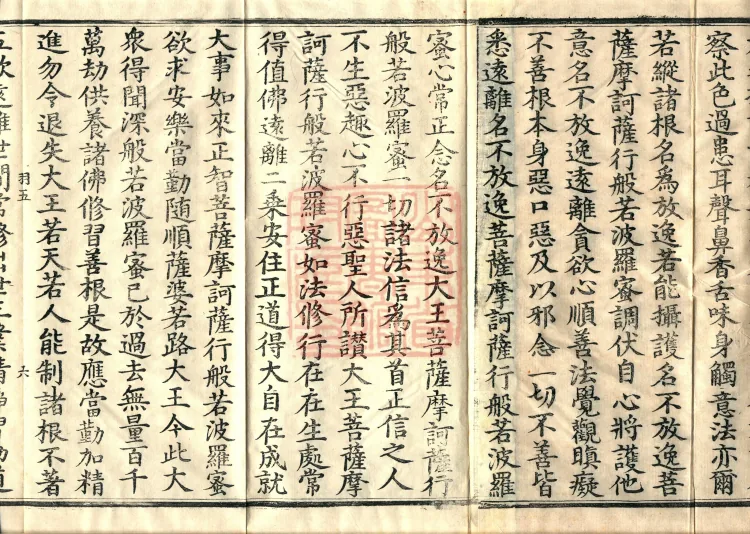 察此色過患耳聲鼻香舌味身觸意法亦爾
若縱諸根名為放逸若能攝護名不放逸菩
薩摩訶薩行般若波羅蜜調伏自心將護他
意名不放逸遠離貪欲心順善法覺觀瞋癡
不善根本身惡口惡及以邪念一切不善皆
悉遠離名不放逸菩薩摩訶薩行般若波羅
蜜心常正念名不放逸大王菩薩摩訶薩行
般若波羅蜜一切諸法信為其首正信之人
不生惡趣心不行惡聖人所讃大王菩薩摩
訶薩行般若波羅蜜如法修行在在生處常
得值佛遠離二乘安住正道得大自在成就
大事如來正智菩薩摩訶薩行般若波羅蜜
欲求安樂當勤随順薩婆若路大王今此大
衆得聞深般若波羅蜜已於過去無量百千
萬劫供養諸佛修習善根是故應當勤加精
進勿令退失大王若天若人能制諸根不著
羽五
六
五欲遠離世間常修出世三業清淨